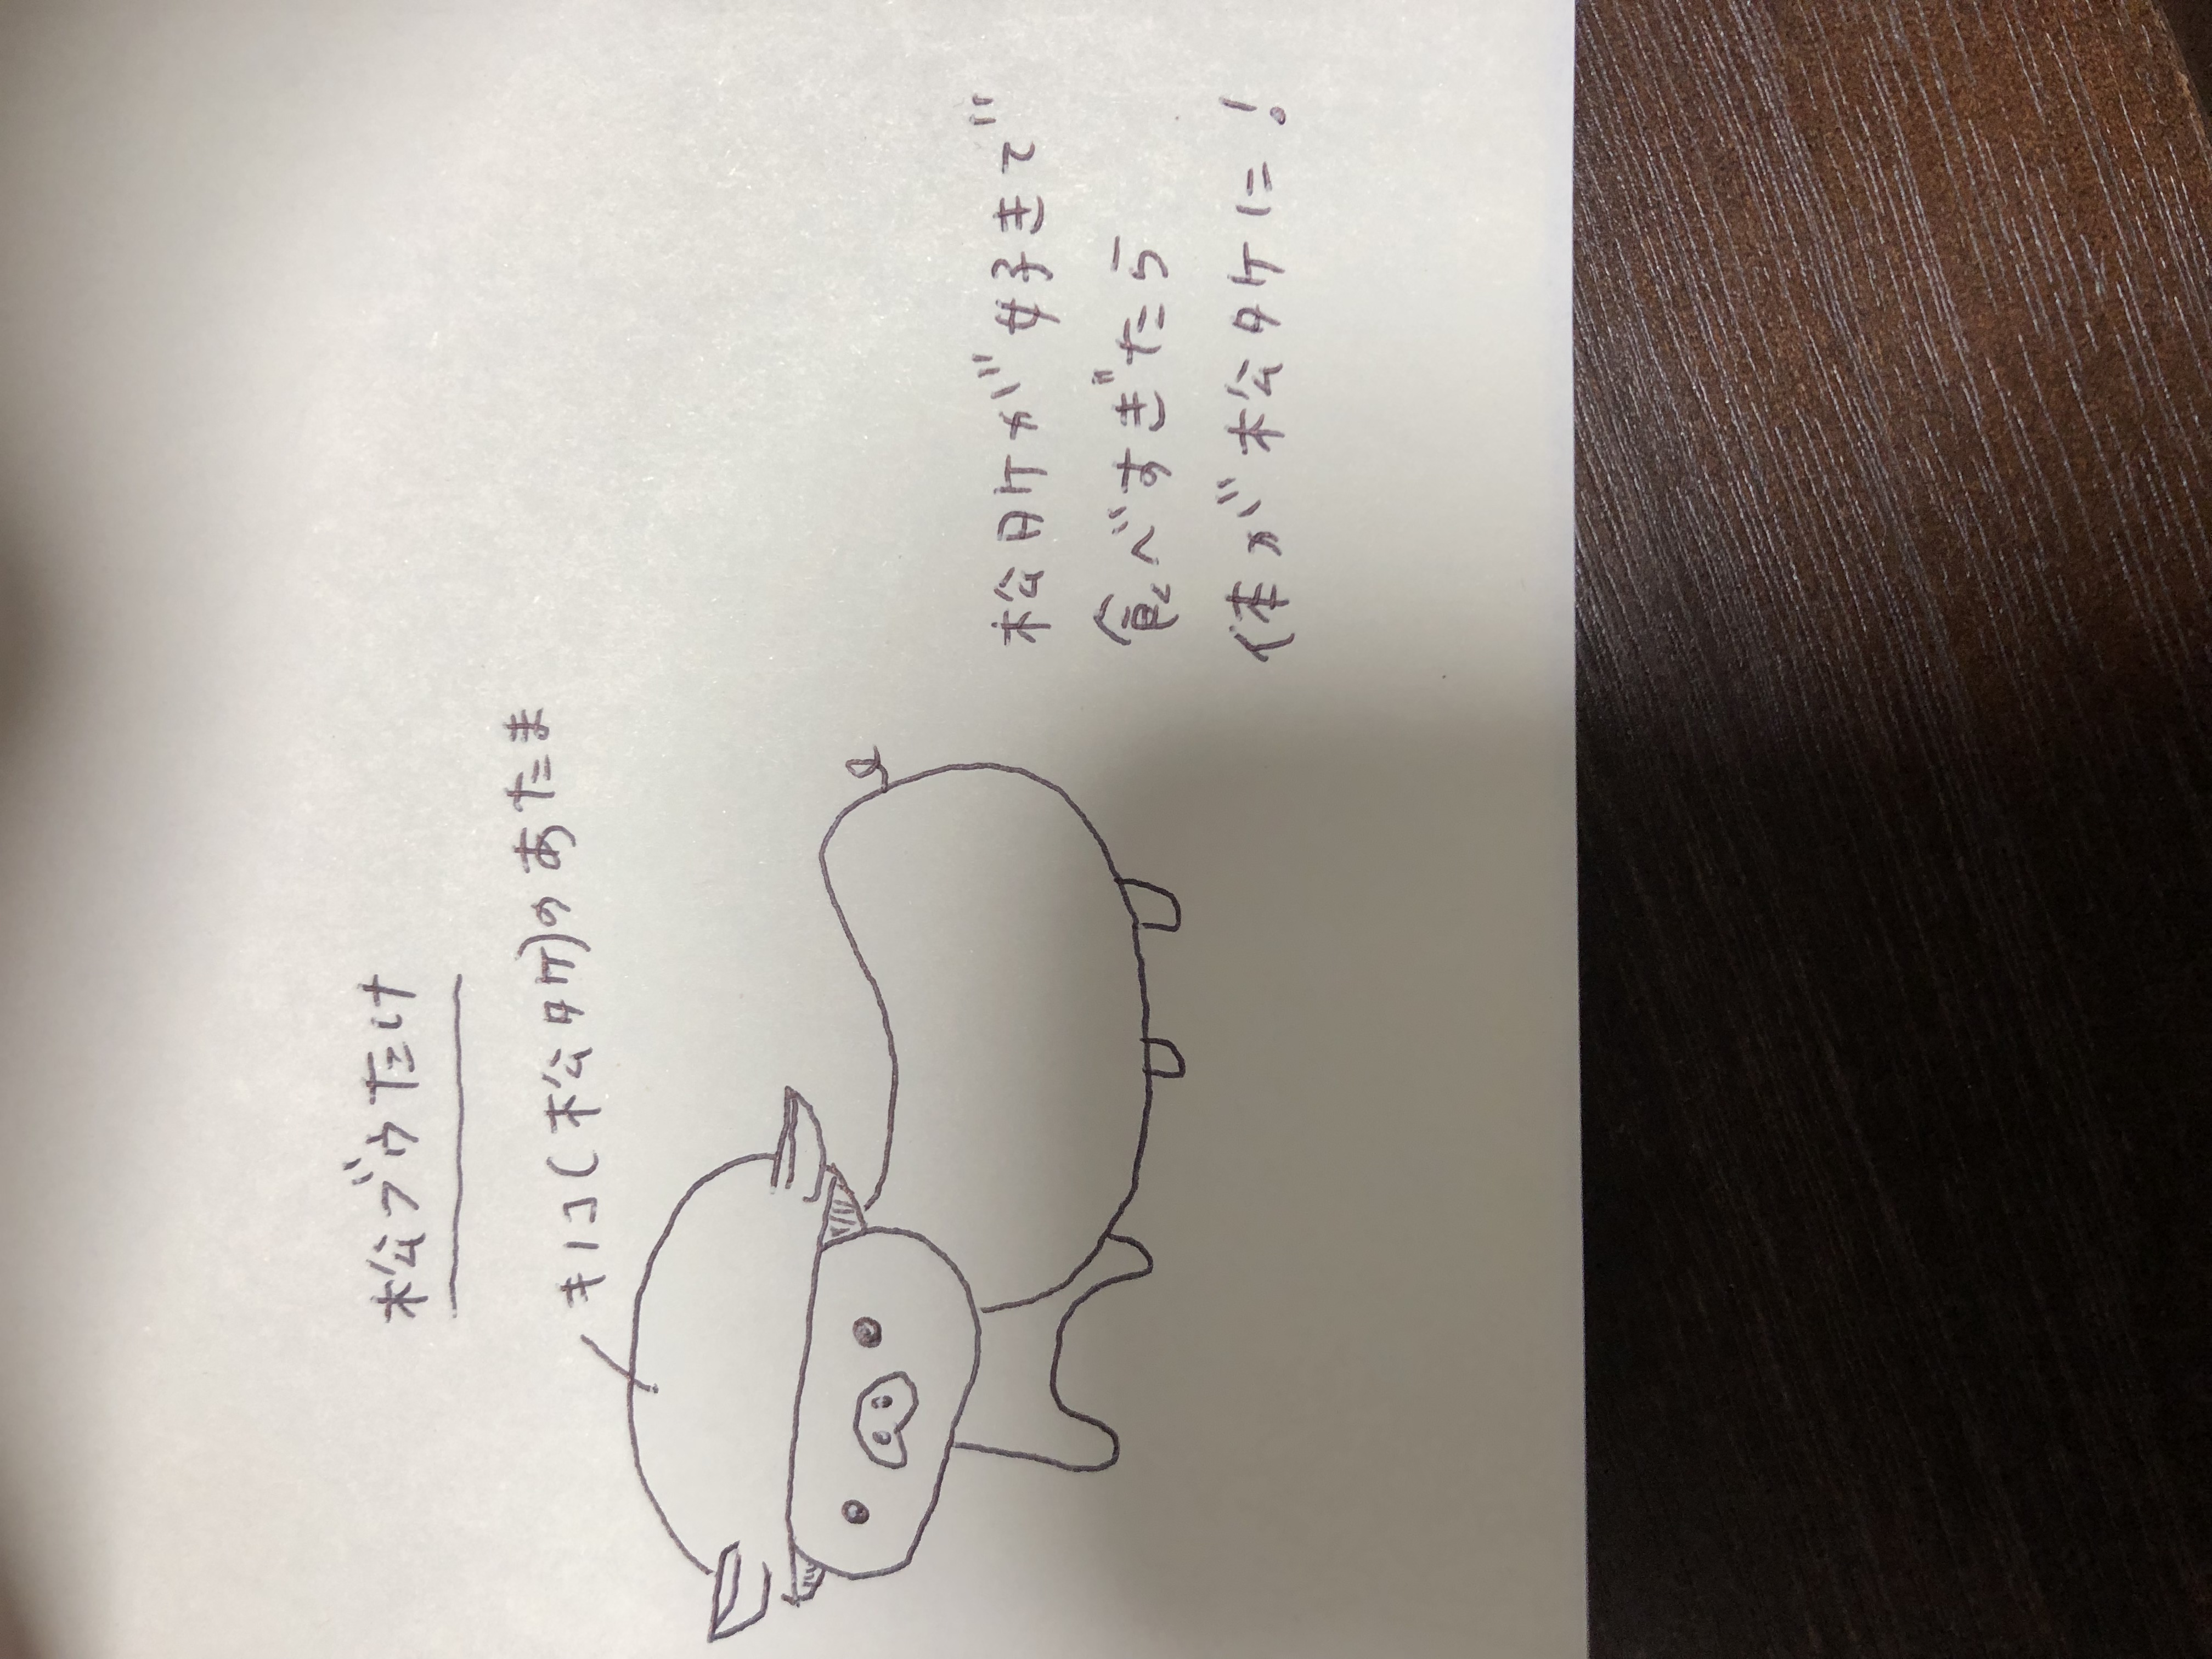 松ブウたけ
キノコ(松タケ)のあたま
松タケが好きで
食べすぎたら
体が松タケに!